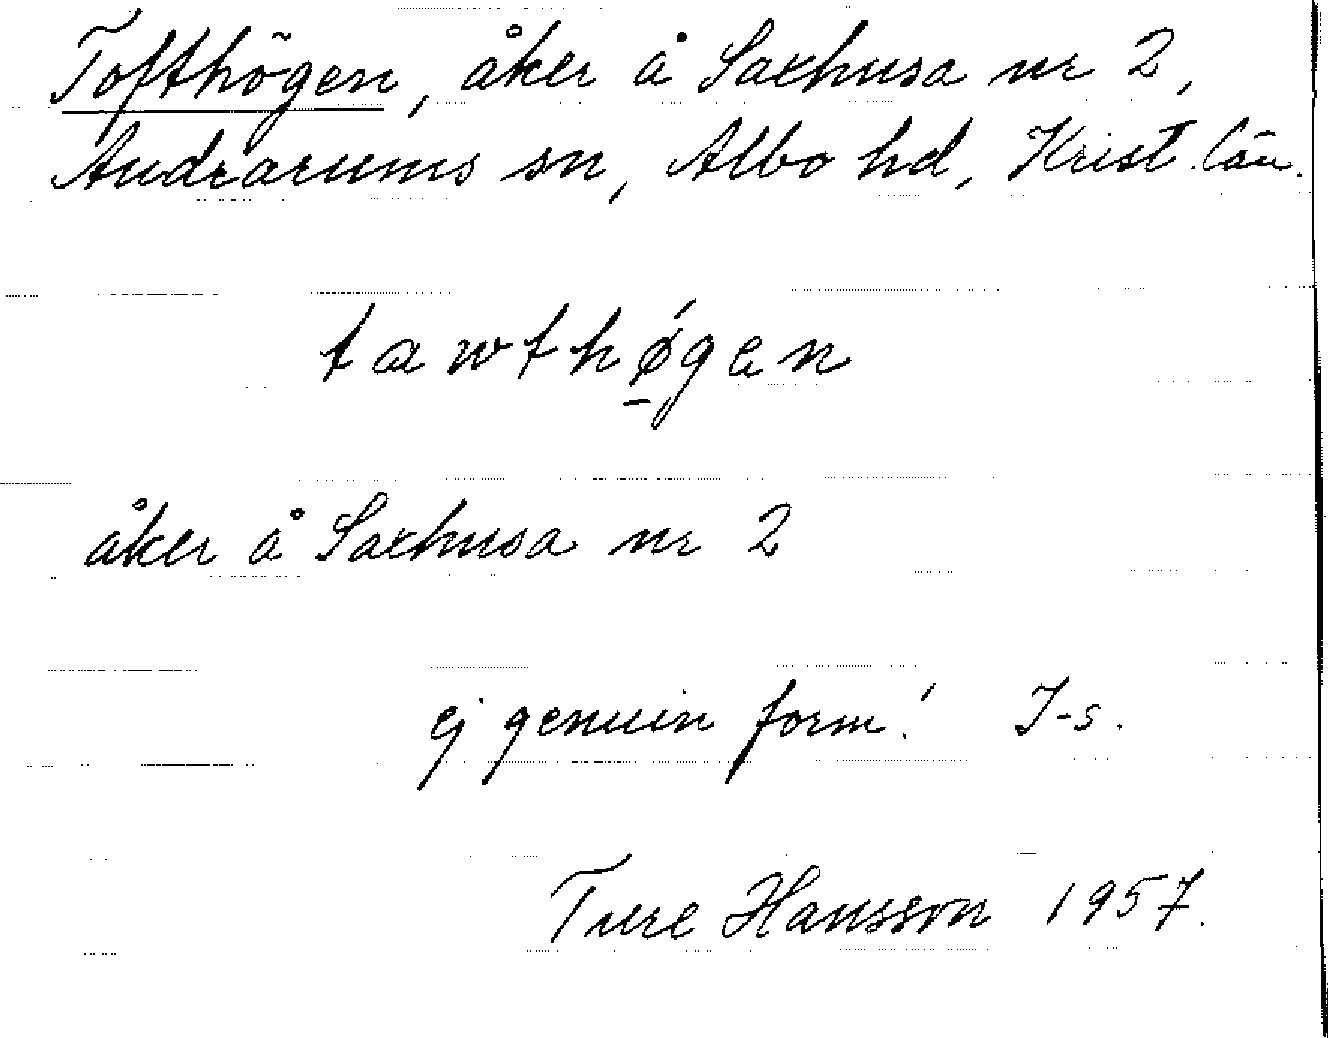 Tofthögen, åker å Saxhusa nr 2,
Andrarums sn, Albo hd, Krist. län.
tawthǿ̱gen
åker å Saxhusa nr 2
ej genuin form! I-s.
Ture Hansson 1957.